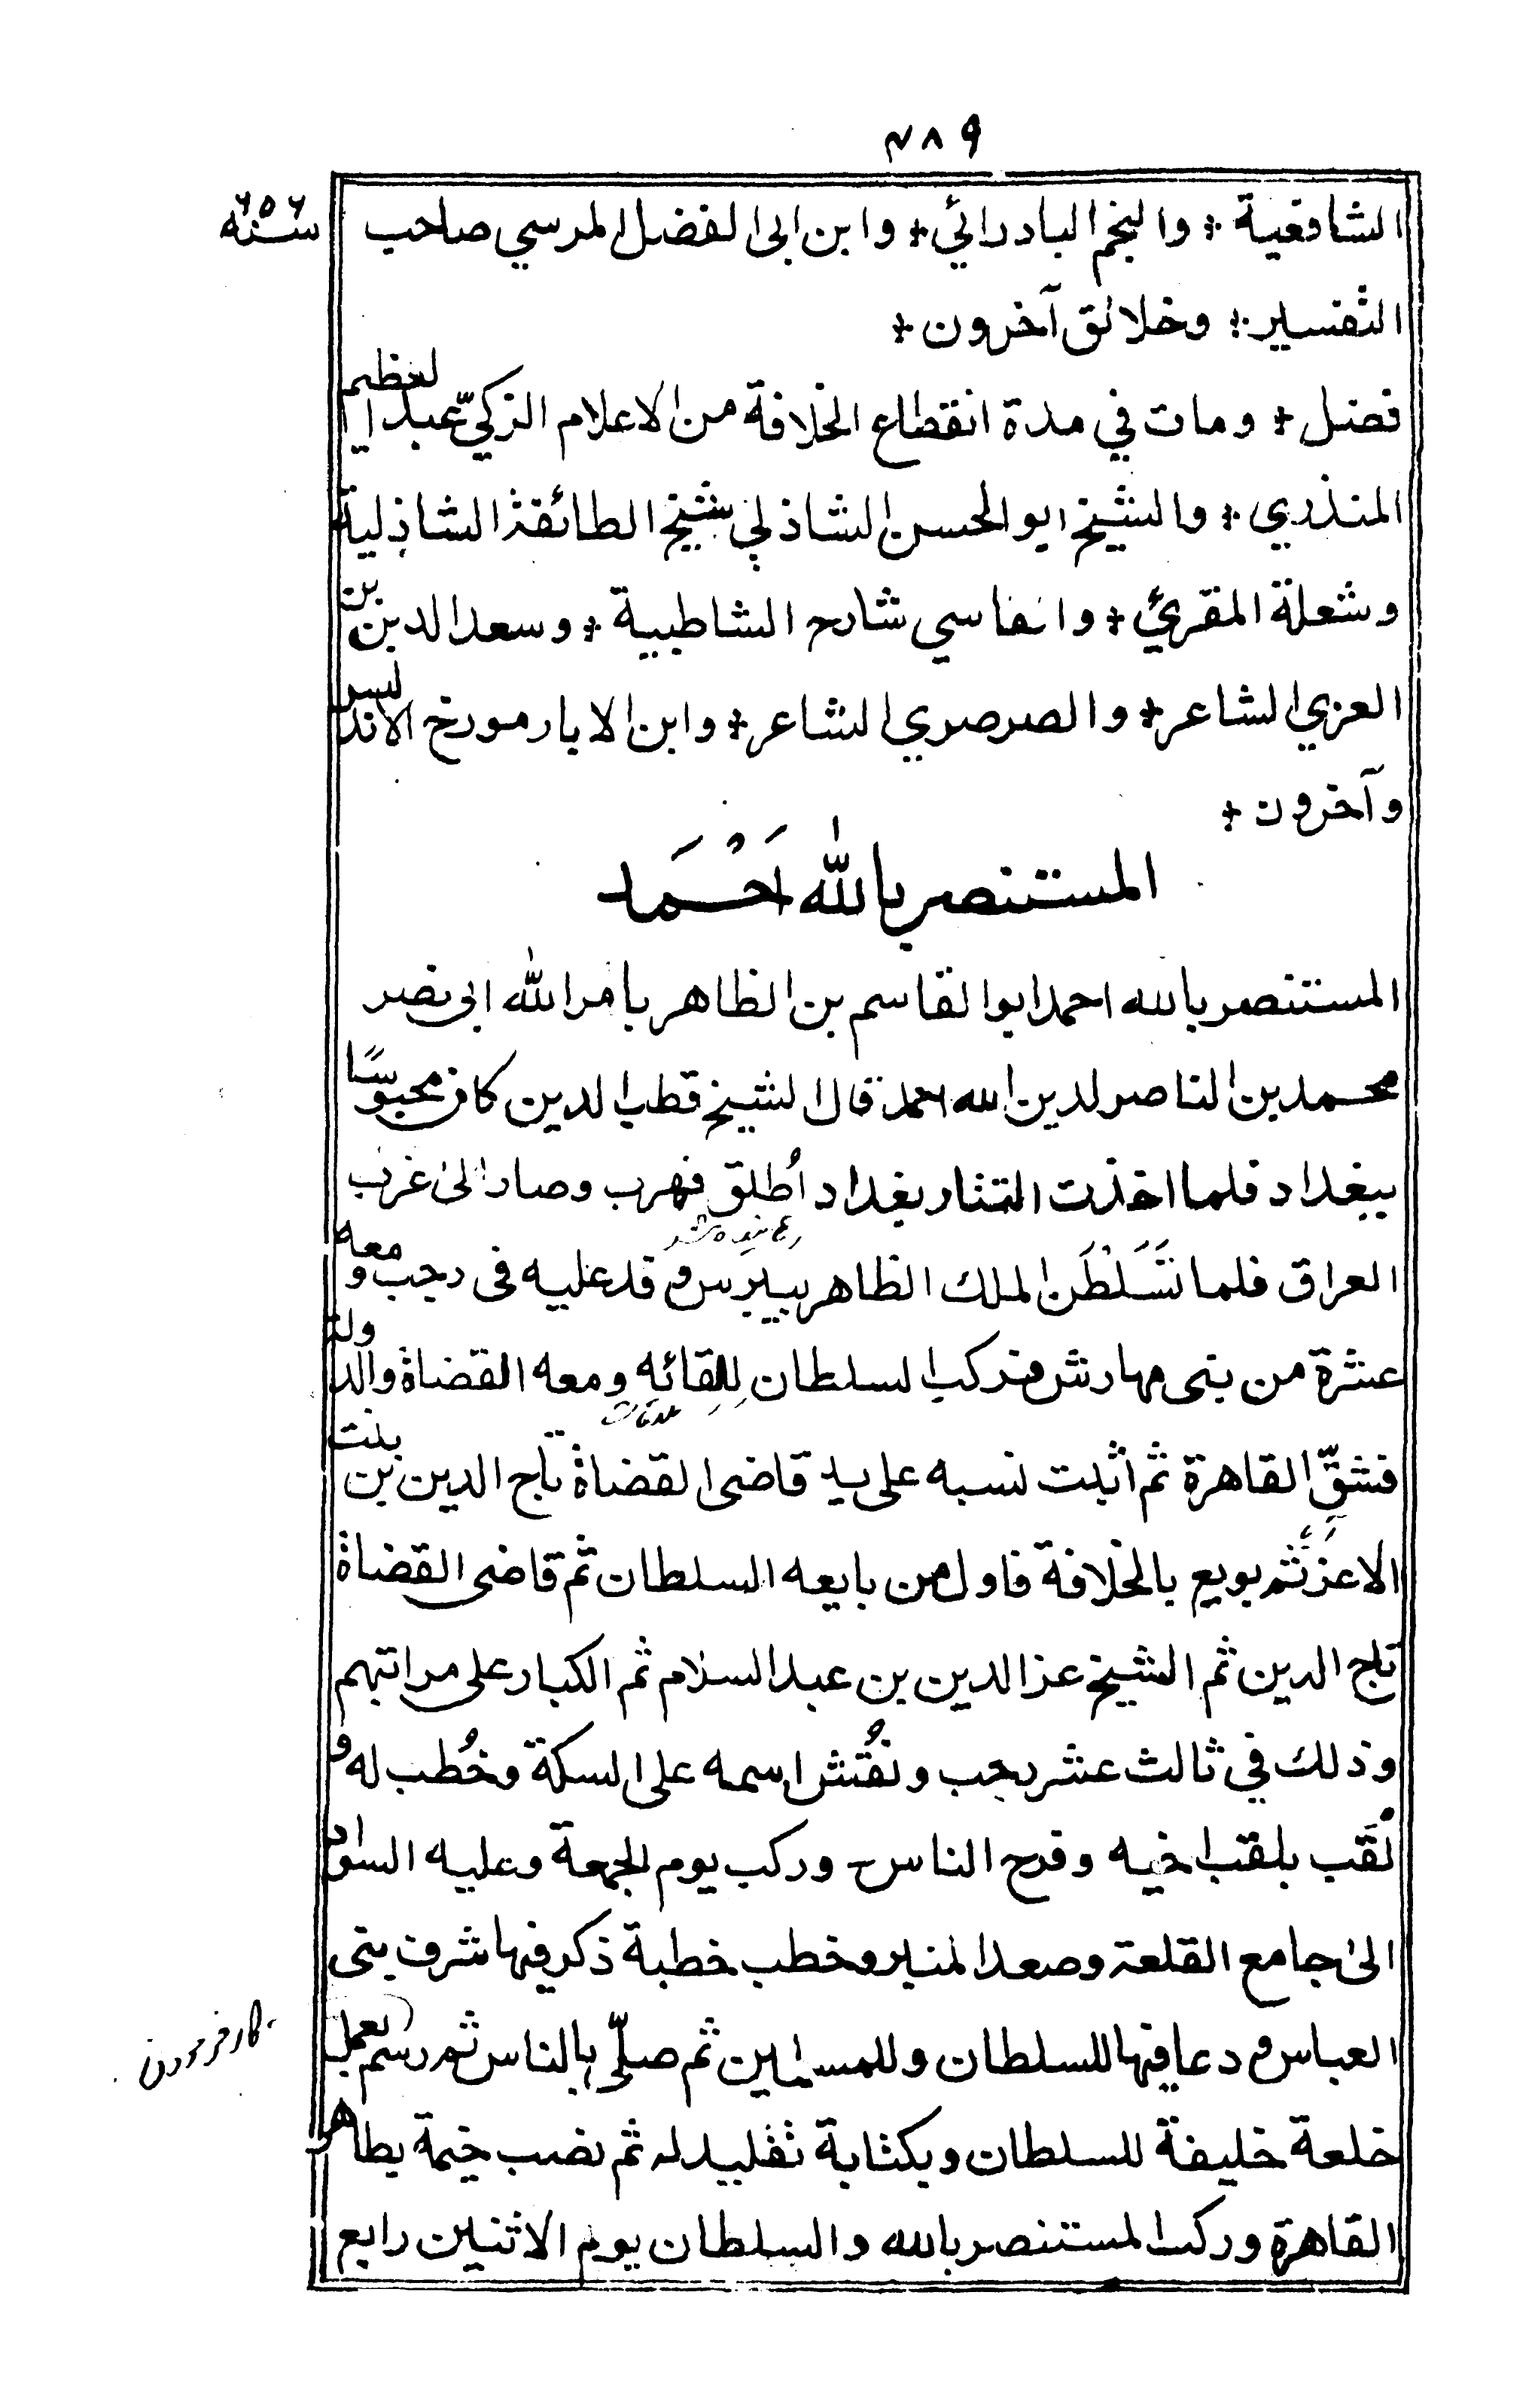 ٤٨٩
سنة ٦٥٦
الشافعية * والنجم البادرائي * وابن ابى الفضل المرسي صاحب
التفسير * وخلائق آخرون *
فصل * ومات في مدة انقطاع الخلافة من الاعلام الزكيّ عبد العظيم
المنذري * والشيخ ابو الحسن الشاذلي شيخ الطائفة الشاذلية
وشعلة المقرئ * والفاسي شارح الشاطبية * وسعد الدين بن
العزي الشاعر * والصرصري الشاعر * وابن الابار مورخ الاندلس
وآخرون *
المستنصر بالله اَحْمَد
المستنصر بالله احمد ابو القاسم بن الظاهر بامر الله ابى نصر
محمد بن الناصر لدين الله احمد قال الشيخ قطب الدين كان محبوسًا
ببغداد فلما اخذت التتار بغداد اُطلق فهرب وصار الى غرب
العراق فلما تَسَلْطَن الملك الظاهر بيبرس وفد عليه فى رجب ومعه
عشرة من بنى مهارش فركب السلطان للقائه ومعه القضاة والدولة
فشقّ القاهرة ثم اثبت نسبه على يد قاضى القضاة تاج الدين بن بنت
الاعَزّ ثم بويع بالخلافة فاول من بايعه السلطان ثم قاضى القضاة
تاج الدين ثم الشيخ عز الدين بن عبد السلام ثم الكبار على مراتبهم
وذلك في ثالث عشر رجب ونُقش اسمه على السكة وخُطب له و
لُقَب بلقب اخيه وفرح الناس وركب يوم الجمعة وعليه السواد
الى جامع القلعة وصعد المنبر وخطب خطبة ذكر فيها شرف بنى
العباس ودعا فيها للسلطان وللمسلمين ثم صلّى بالناس ثم رسم بعمل
خلعة خليفة للسلطان وبكتابة تقليد له ثم نصب خيمة بظاهر
القاهرة وركب المستنصر بالله والسلطان يوم الاثنين رابع